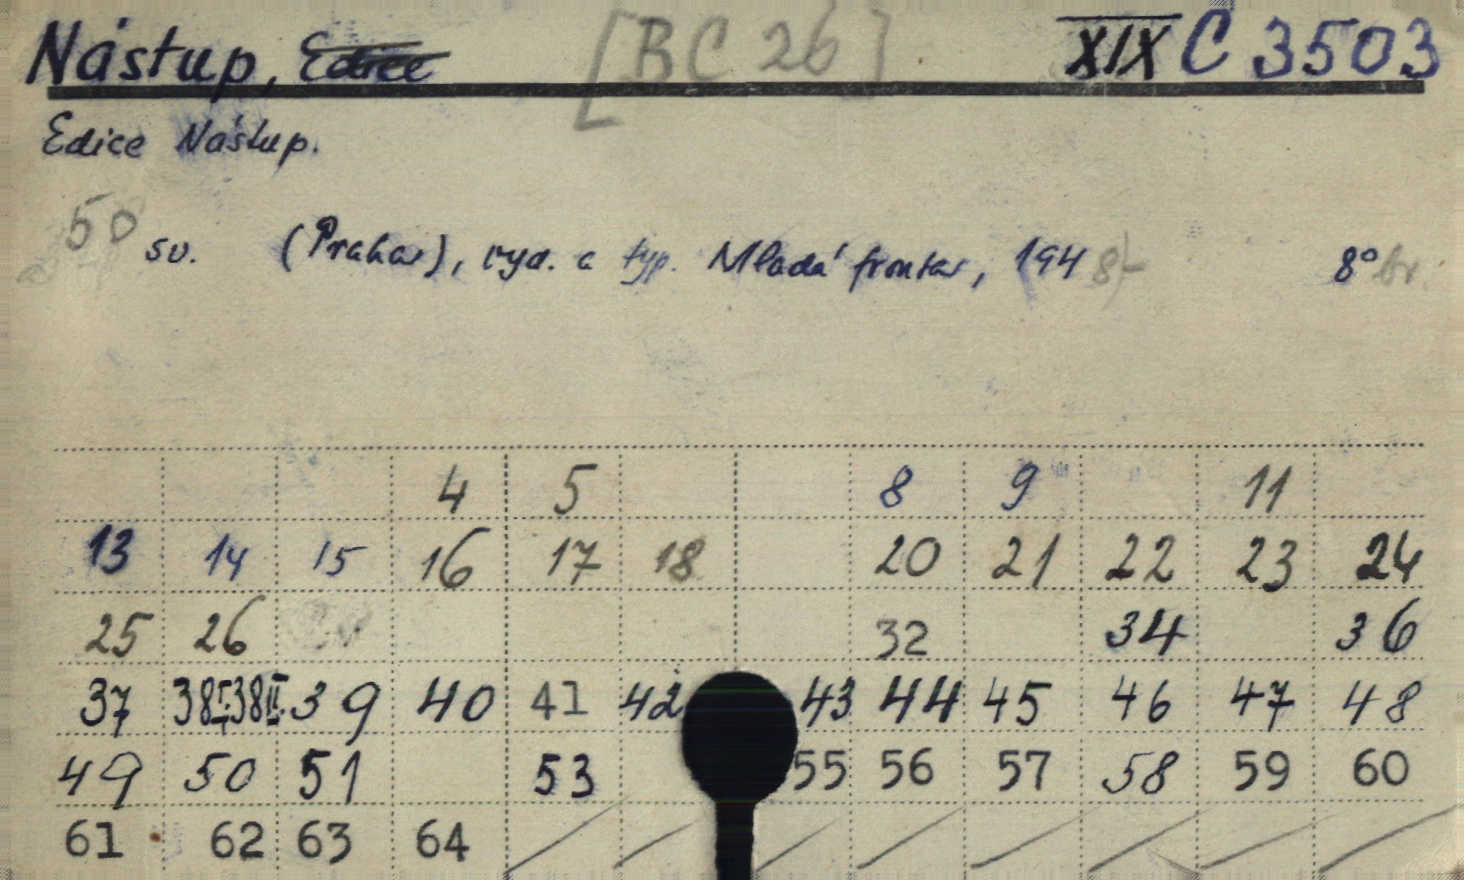 Nástup, Edice [BC 26] XIX C 3503
Edice Nástup.
50 sv. (Praha), vyd. a typ. Mladá fronta, 1948- 8° br.
4 5 8 9 11
13 14 15 16 17 18 20 21 22 23 24
25 26 32 34 36
37 38I. 38II. 39 40 41 42 43 44 45 46 47 48
49 50 51 53 55 56 57 58 59 60
61 62 63 64